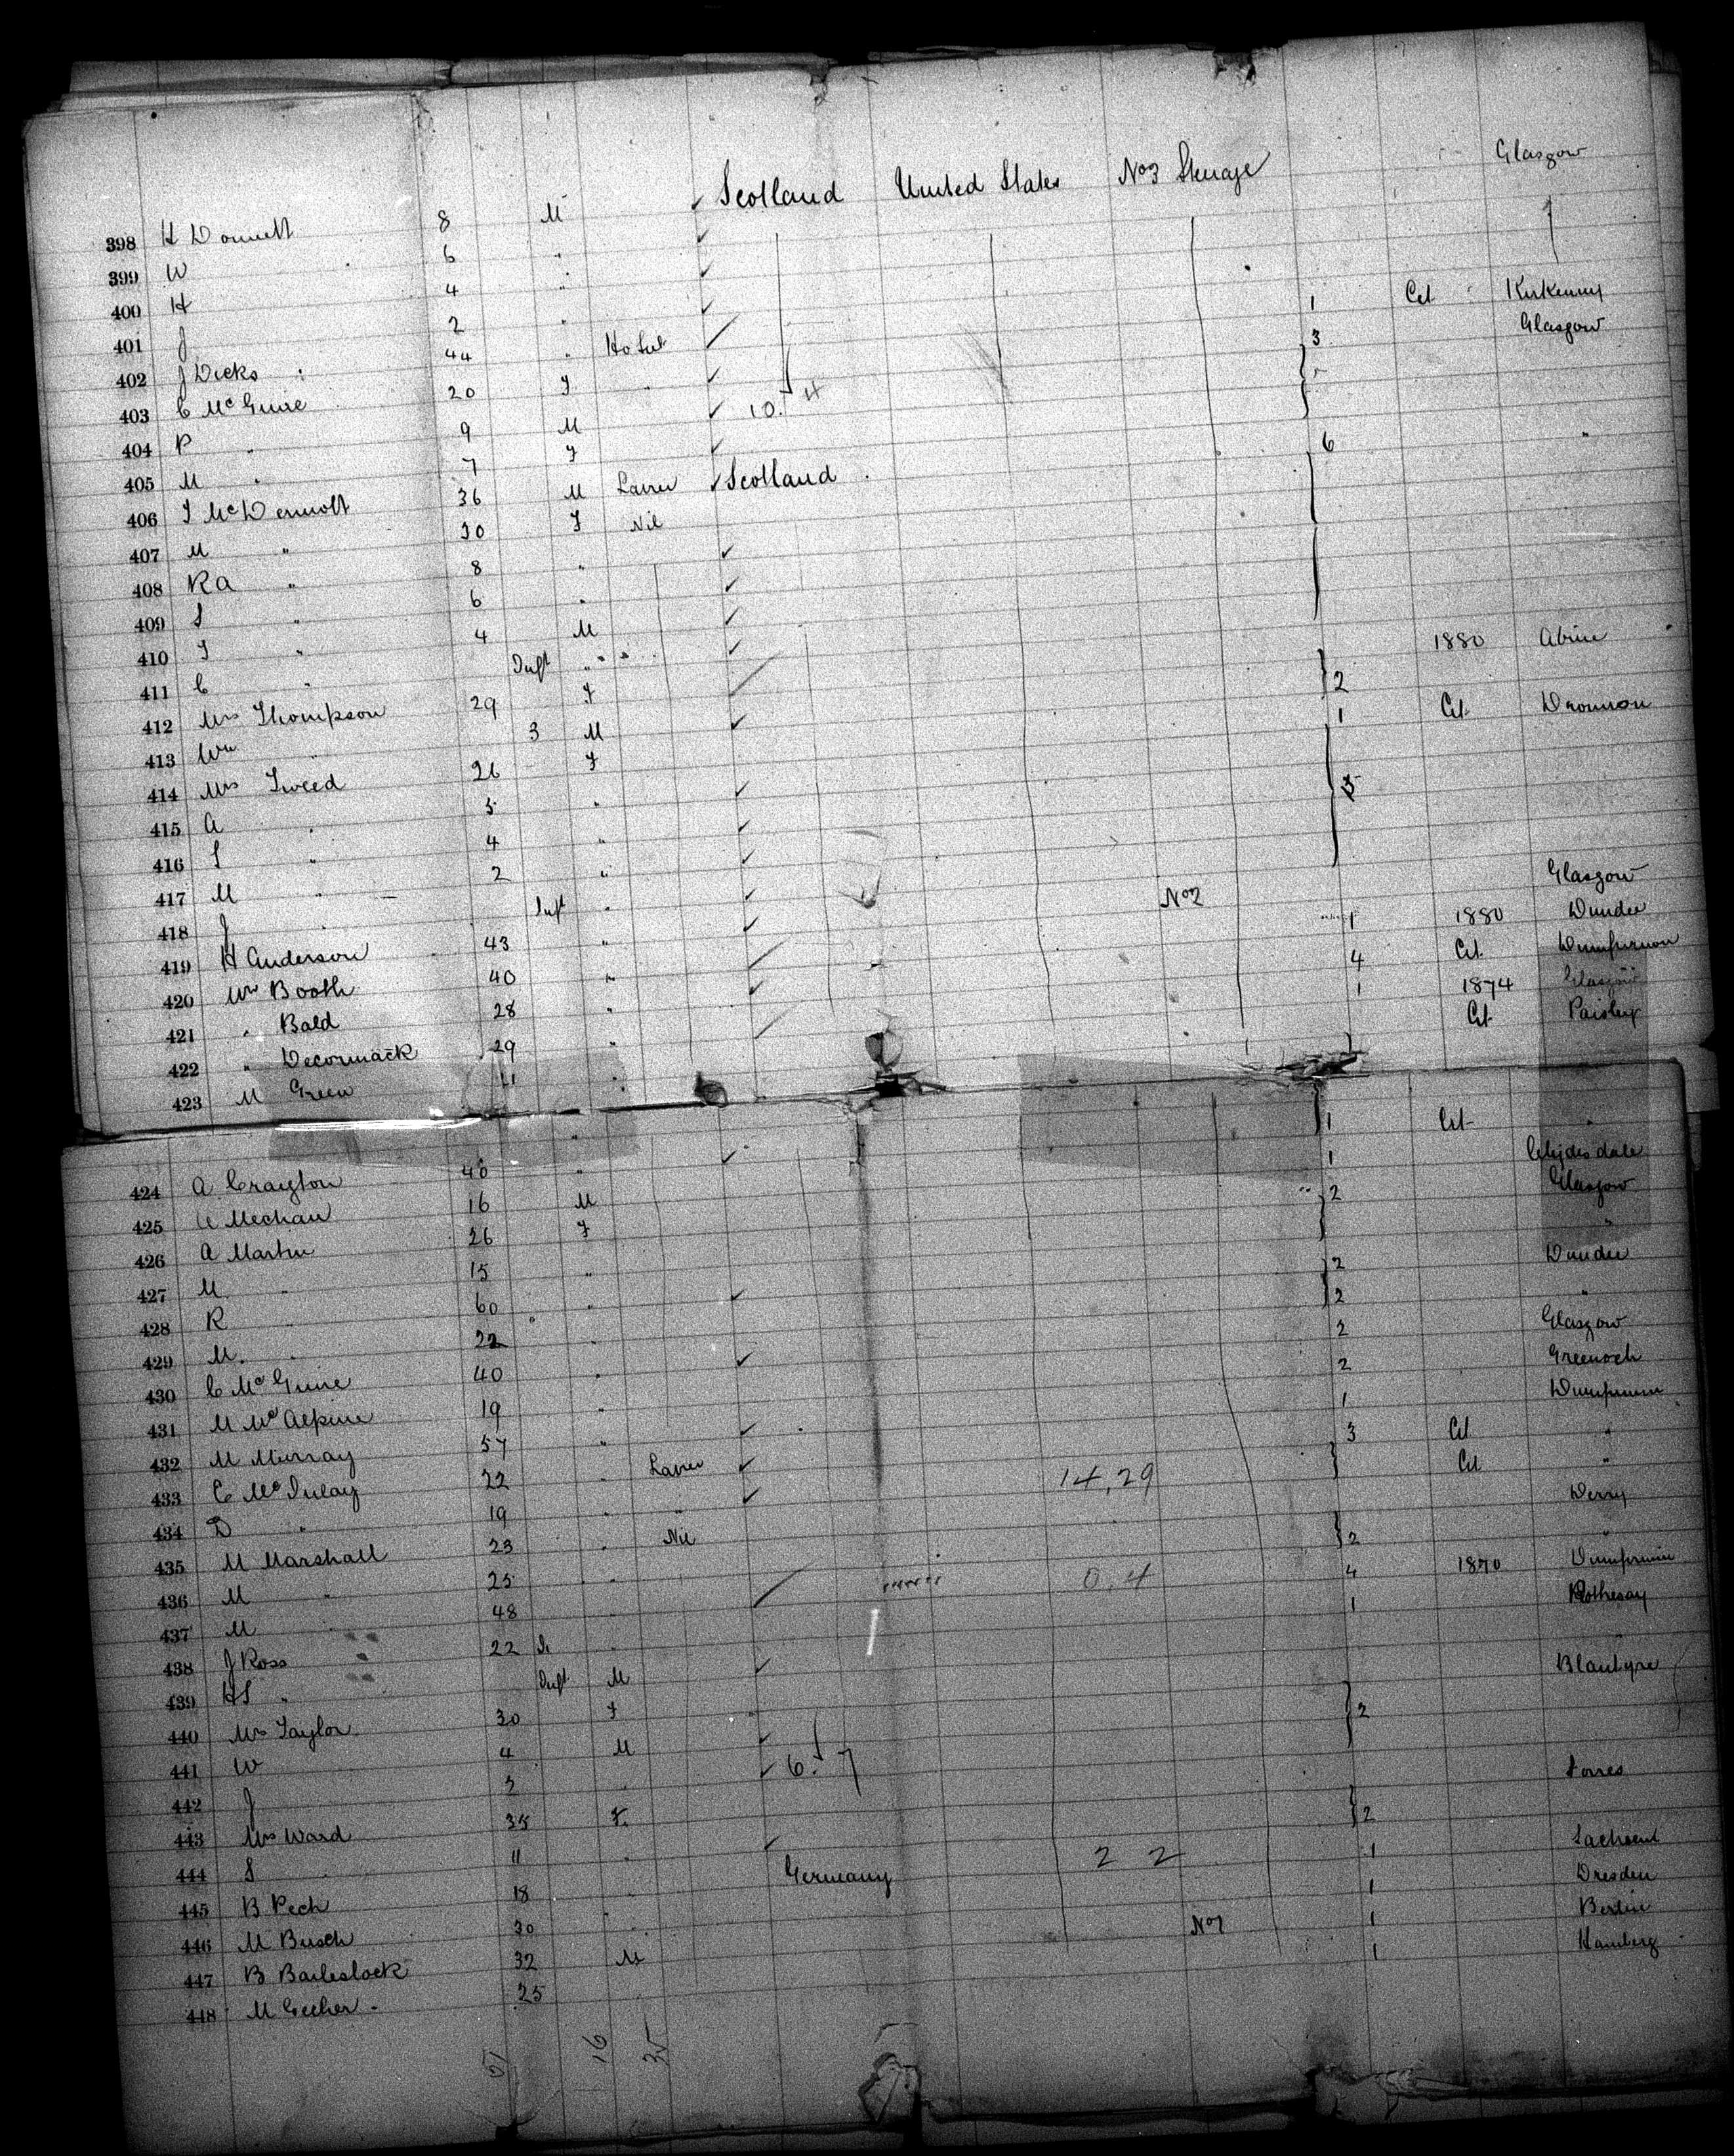 398 H Donnell 8 M ✓ Scotland United States No 3 Steerage Glasgow
399 W 6 " ✓
400 H 4 " ✓
401 J 2 " ✓ 1 Cit
402 J Dicks 44 " 3 Glasgow
403 C McGuire 20 F " ✓
404 P " 9 M ✓ 10. 4
405 M " 7 F ✓ 6 "
406 J McDermott 36 M ✓ Scotland
407 M " 30 F Nil
408 R A " 8 " ✓
409 S " 6 " ✓
410 J " 4 M ✓
411 C " Inft " ✓ 1880
412 Mrs Thompson 29 F 2
413 Wm " 3 M ✓ 1 Cit
414 Mrs Tweed 26 F
415 A " 5 " ✓
416 S " 4 " ✓
417 M " 2 " ✓
418 J " Inft " ✓ No 2 Glasgow
419 H Anderson 43 " ✓ 1 1880 Dundee
420 Wm Booth 40 " 4 Cit
421 " Bald 28 " ✓ 1 1874 Glasgow
422 " Decormack 29 " Cit Paisley
423 M Green 11 "
424 A Crayton 40 " ✓ 1 Cit "
425 Mechan 16 M 1 Clydesdale
426 A Martin 26 F 2 Glasgow
427 M " 15 " "
428 R " 60 " ✓ 2 Dundee
429 M. " 22 " 2 "
430 C McGuire 40 " ✓ 2 Glasgow
431 M McAlpine 19 " 2 Greenock
432 M Murray 57 " ✓ 1
433 C McInlay 22 " ✓ 3 Cit "
434 D " 19 " " ✓ 14,29 Cit "
435 M Marshall 23 " Nil Derry
436 M " 25 " 2 "
437 M " 48 0.4 4 1870
438 J Ross 22 1 Rothesay
439 HS " Inft M ✓
440 Mrs Taylor 30 F 2 Blantyre
441 W 4 M ✓
442 J ✓ 6. 7
443 Mrs Ward 35 F. 2 Forres
444 S 11 " ✓
445 B Pech 18 " Germany 2 2 1
446 M Busch 30 " 1 Dresden
447 B Baileslock 32 M No 1 1 Berlin
448 M Gecher 25 1 Hamberg
51 16 35